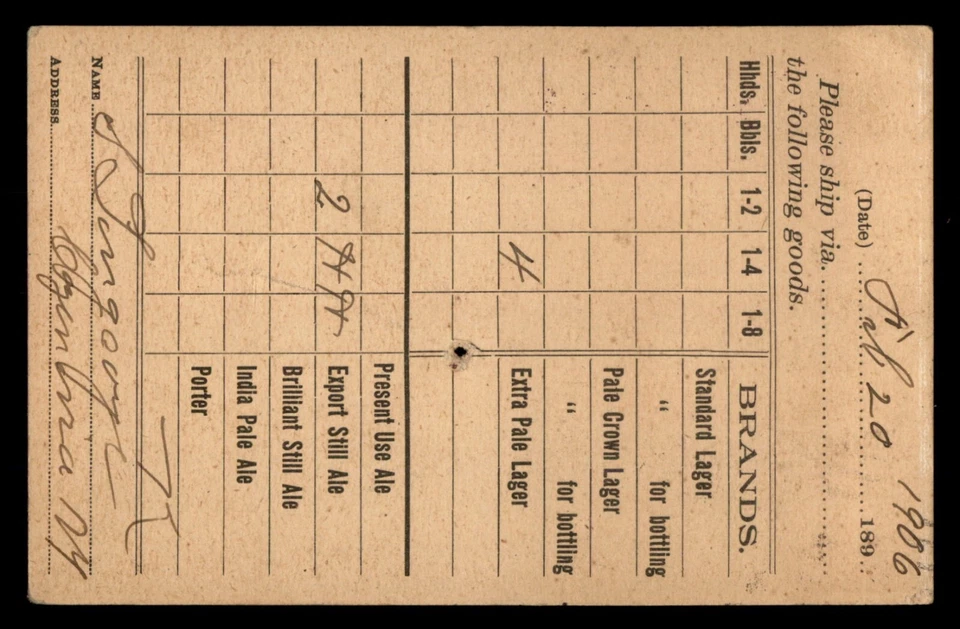 (Date) Feb 20 1906 189
Please ship via
the following goods.
Hhds. Bbls. 1-2 1-4 1-8 BRANDS.
Standard Lager
“ for bottling
Pale Crown Lager
“ for bottling
4 Extra Pale Lager
Present Use Ale
2 Export Still Ale
Brilliant Still Ale
India Pale Ale
Porter
NAME
ADDRESS NY